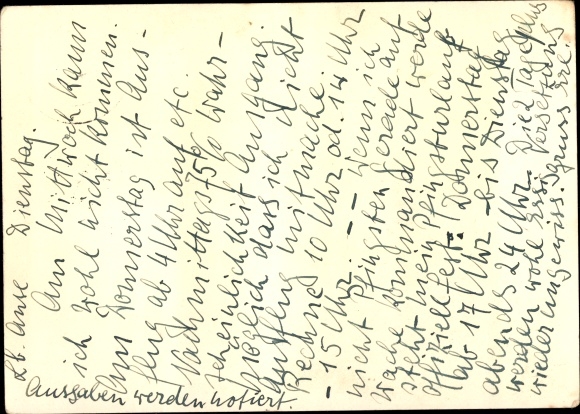 Lb. Anne Dienstag.
Am Mittwoch kann
ich wohl nicht kommen.
Am Donnerstag ist Aus-
flug ab 4 Uhr auf etc.
Nachmittags 75% Wahr-
scheinlichkeit Ausgang
Möglich dass ich nicht
Ausflug mitmache
Rechne 10 Uhr od. 14 Uhr
- 15 Uhr. -- Wenn ich
nicht Pfingsten gerade auf
Wache kommandiert werde
steht mein Pfingsturlaub
offiziell fest. Donnerstag
ab 17 Uhr - bis Dienstag
abends 24 Uhr.
werden wohl Die Tage plus
wieder ungewiss. Versetzung
Gruss
Ausgaben werden notiert.